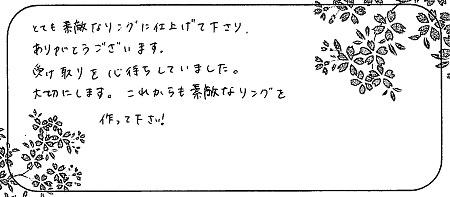 とても素敵なリングに仕上げて下さり、
ありがとうございます。
受け取りを心待ちしていました。
大切にします。これからも素敵なリングを
作って下さい!